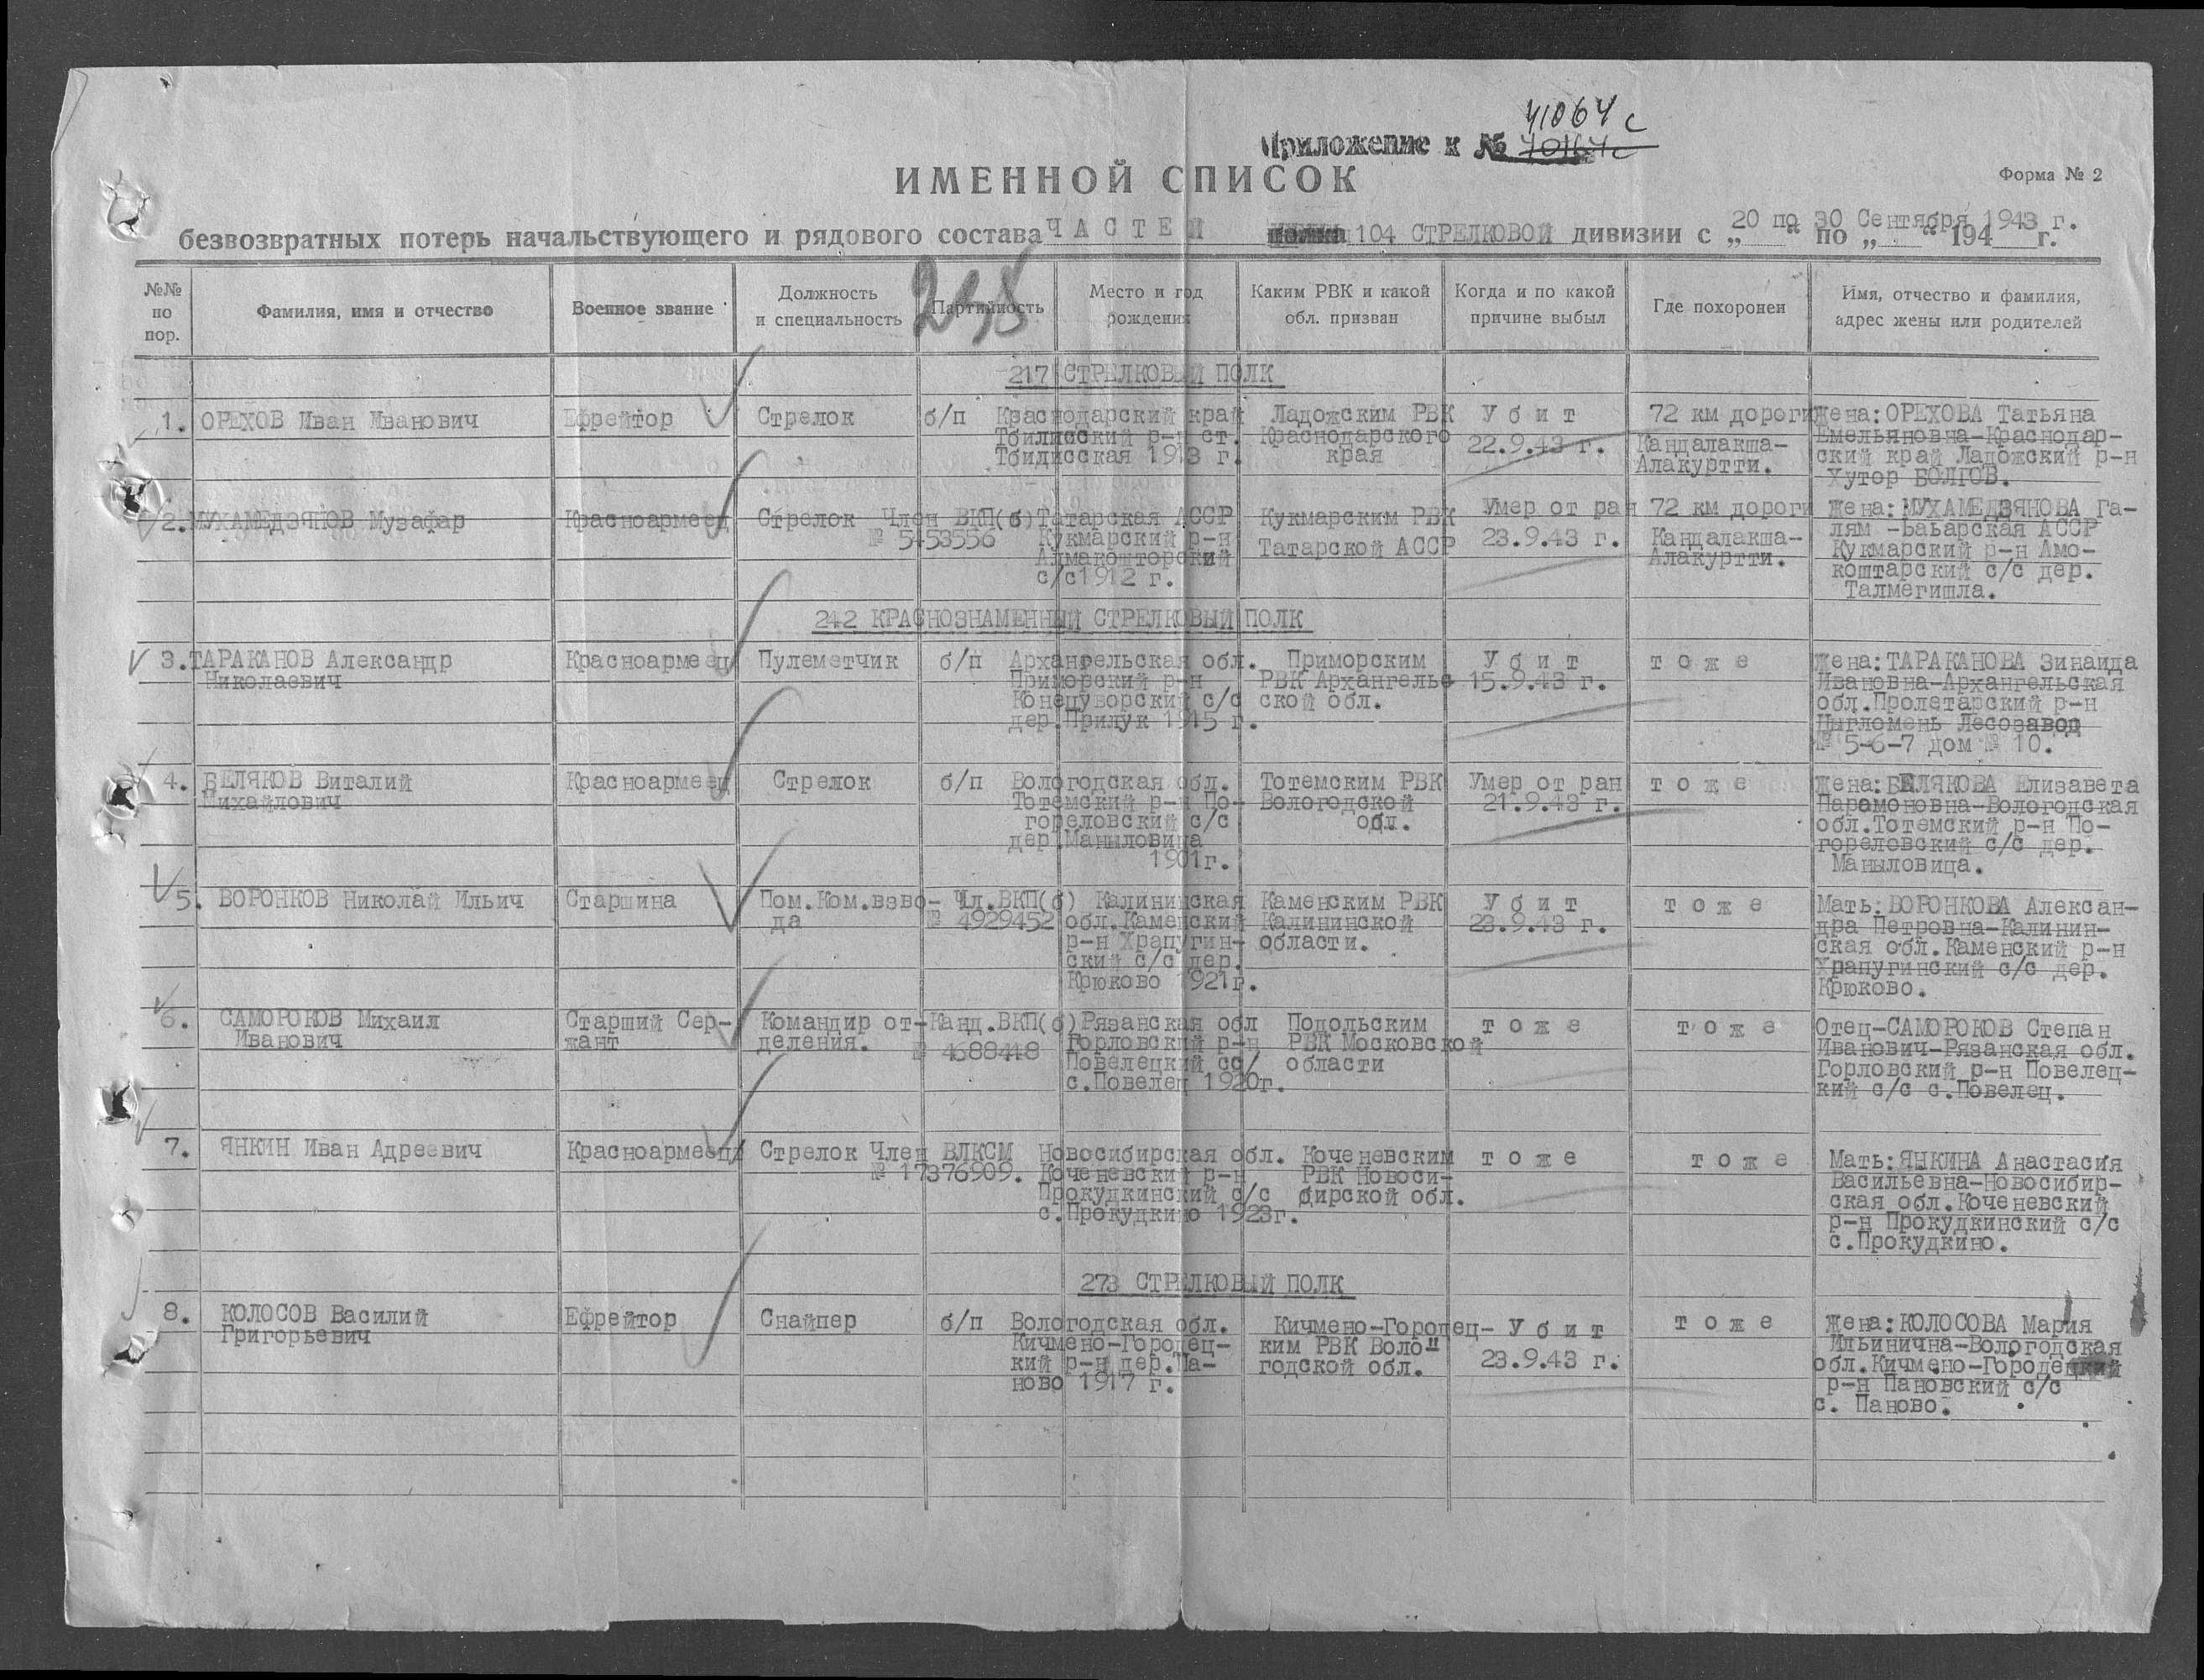 41064 с
Приложение к № 40164с
ИМЕННОЙ СПИСОК
Форма № 2
безвозвратных потерь начальствующего и рядового состава ЧАСТЕЙ полка 104 СТРЕЛКОВОЙ дивизии с „ “ по „ “ 194 г.
20 по 30 Сентября 1943 г.
№№ по пор.
Фамилия, имя и отчество
Военное звание
Должность и специальность
Партийность
Место и год рождения
Каким РВК и какой обл. призван
Когда и по какой причине выбыл
Где похоронен
Имя, отчество и фамилия, адрес жены или родителей
217 СТРЕЛКОВЫЙ ПОЛК
1. ОРЕХОВ Иван Иванович Ефрейтор Стрелок б/п Краснодарский край Ладожским РВК Убит 72 км дороги Жена: ОРЕХОВА Татьяна
Тбилисский р-н ст. Краснодарского 22.9.43 г. Кандалакша- Емельяновна-Краснодар-
Тбидисская 1913 г. края Алакуртти. ский край Ладожский р-н
Хутор БОЛГОВ.
2. МУХАМЕДЗЯНОВ Музафар Красноармеец Стрелок Член ВКП(б) Татарская АССР Кукмарским РВК Умер от ран 72 км дороги Жена: МУХАМЕДЗЯНОВА Га-
№ 5453556 Кукмарский р-н Татарской АССР 23.9.43 г. Кандалакша- лям -Баьарская АССР
Алмакошторский Алакуртти. Кукмарский р-н Амо-
с/с1912 г. коштарский с/с дер.
Талмегишла.
242 КРАСНОЗНАМЕННЫЙ СТРЕЛКОВЫЙ ПОЛК
3. ТАРАКАНОВ Александр Красноармеец Пулеметчик б/п Архангельская обл. Приморским Убит тоже Жена: ТАРАКАНОВА Зинаида
Николаевич Приморский р-н РВК Архангельс 15.9.43 г. Ивановна-Архангельская
Конецуворский с/с ской обл. обл.Пролетарский р-н
дер.Прилук 1915 г. Цыгломень Лесозавод
№ 5-6-7 дом № 10.
4. БЕЛЯКОВ Виталий Красноармеец Стрелок б/п Вологодская обл. Тотемским РВК Умер от ран тоже Жена: БЕЛЯКОВА Елизавета
Михайлович Тотемский р-н По- Вологодской 21.9.43 г. Парамоновна-Вологодская
гореловский с/с обл. обл.Тотемский р-н По-
дер.Маныловица гореловский с/с дер.
1901г. Маныловица.
5. ВОРОНКОВ Николай Ильич Старшина Пом.Ком.взво- Чл.ВКП(б) Калининская Каменским РВК Убит тоже Мать: ВОРОНКОВА Алексан-
да № 4929452 обл.Каменский Калининской 23.9.43 г. дра Петровна-Калинин-
р-н Храпугин- области. ская обл.Каменский р-н
ский с/с дер. Храпугинский с/с дер.
Крюково 1921г. Крюково.
6. САМОРОКОВ Михаил Старший Сер- Командир от- Канд.ВКП(б) Рязанская обл Подольским тоже тоже Отец-САМОРОКОВ Степан
Иванович жант деления. № 4688448 Горловский р-н РВК Московской Иванович-Рязанская обл.
Повелецкий сс/ области Горловский р-н Повелец-
с.Повелец 1920г. кий с/с с.Повелец.
7. ЯНКИН Иван Адреевич Красноармеец Стрелок Член ВЛКСМ Новосибирская обл. Коченевским тоже тоже Мать: ЯНКИНА Анастасия
№ 17376909. Коченевский р-н РВК Новоси- Васильевна-Новосибир-
Прокудкинский с/с бирской обл. ская обл.Коченевский
с.Прокудкино 1923г. р-н Прокудкинский с/с
с.Прокудкино.
273 СТРЕЛКОВЫЙ ПОЛК
8. КОЛОСОВ Василий Ефрейтор Снайпер б/п Вологодская обл. Кичмено-Городец- Убит тоже Жена: КОЛОСОВА Мария
Григорьевич Кичмено-Городец- ким РВК Воло- 23.9.43 г. Ильинична-Вологодская
кий р-н дер.Па- годской обл. обл.Кичмено-Городецкий
ново 1917 г. р-н Пановский с/с
с. Паново.